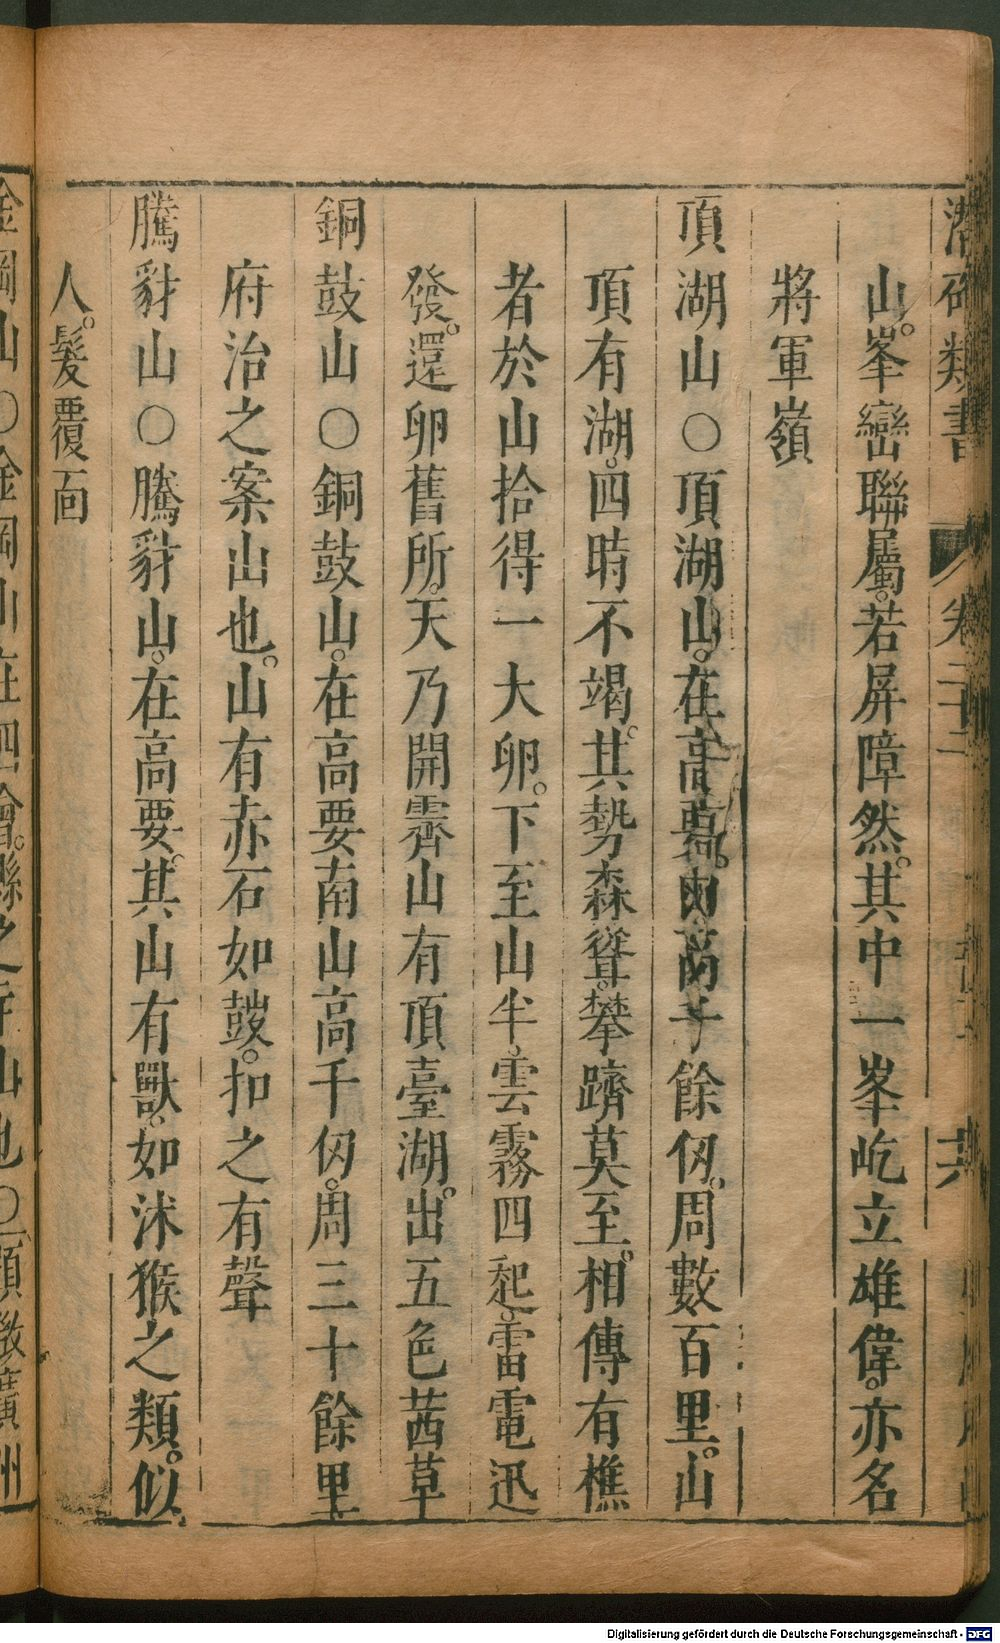 潛確類書 卷二十二
山。峯巒聯屬。若屏障然。其中一峯屹立雄偉。亦名
將軍嶺
頂湖山○頂湖山。在高要。高千餘仞。周數百里。山
頂有湖。四時不竭。其勢森聳。攀躋莫至。相傳有樵
者於山拾得一大卵。下至山半。雲霧四起。雷電迅
發。還卵舊所。天乃開霽山有頂臺湖。出五色茜草
銅鼓山○銅鼓山。在高要南山高千仞。周三十餘里
府治之案山也。山有赤石如鼓。扣之有聲
騰豺山○騰豺山。在高要。其山有獸。如沐猴之類。似
人。髮覆面
金岡山○金岡山在四會。縣之 山也○二類敘廣州
Digitalisierung gefördert durch die Deutsche Forschungsgemeinschaft - DFG